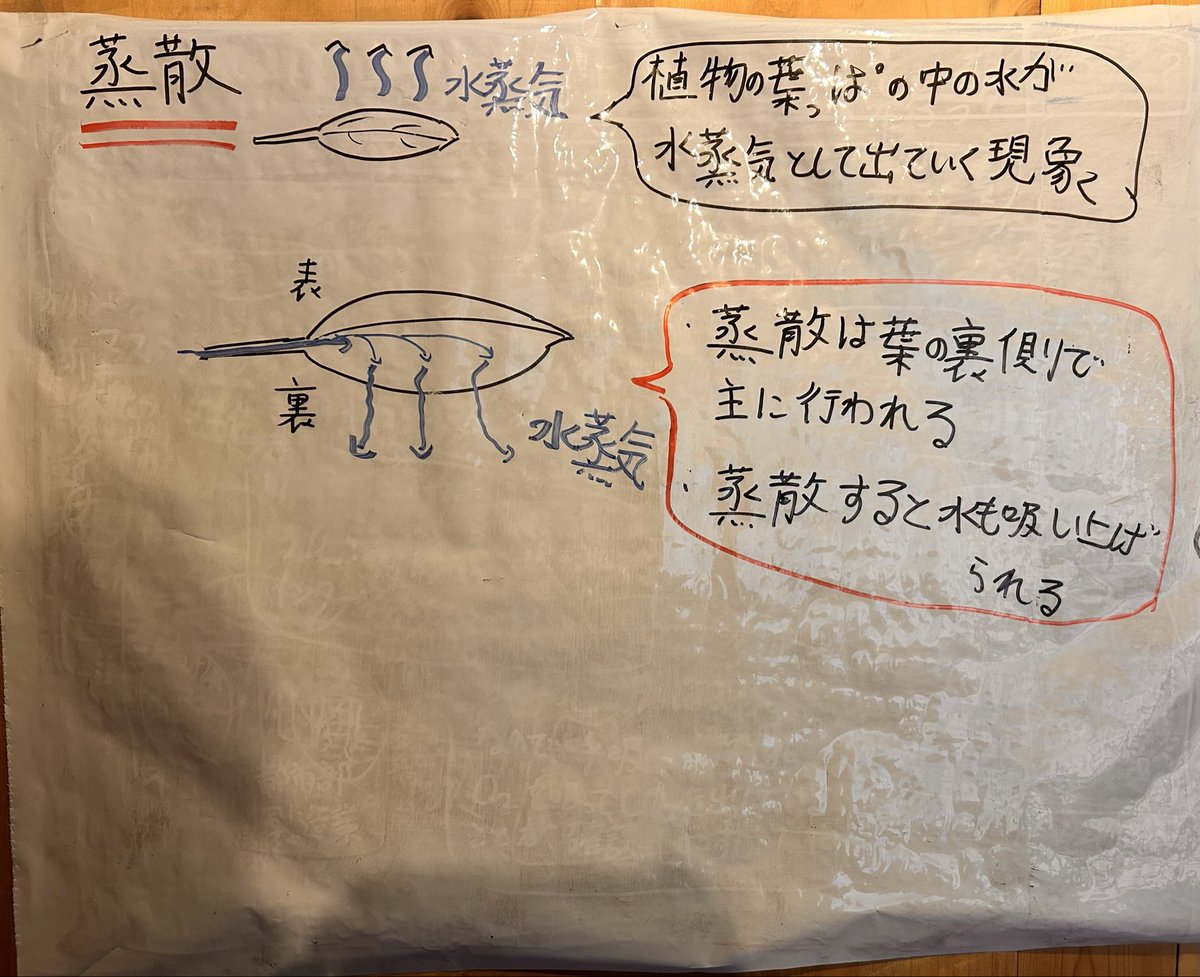 蒸散
水蒸気
植物の葉っぱの中の水が
水蒸気として出ていく現象
表
裏
水蒸気
・蒸散は葉の裏側で
主に行われる
・蒸散すると水も吸い上げ
られる